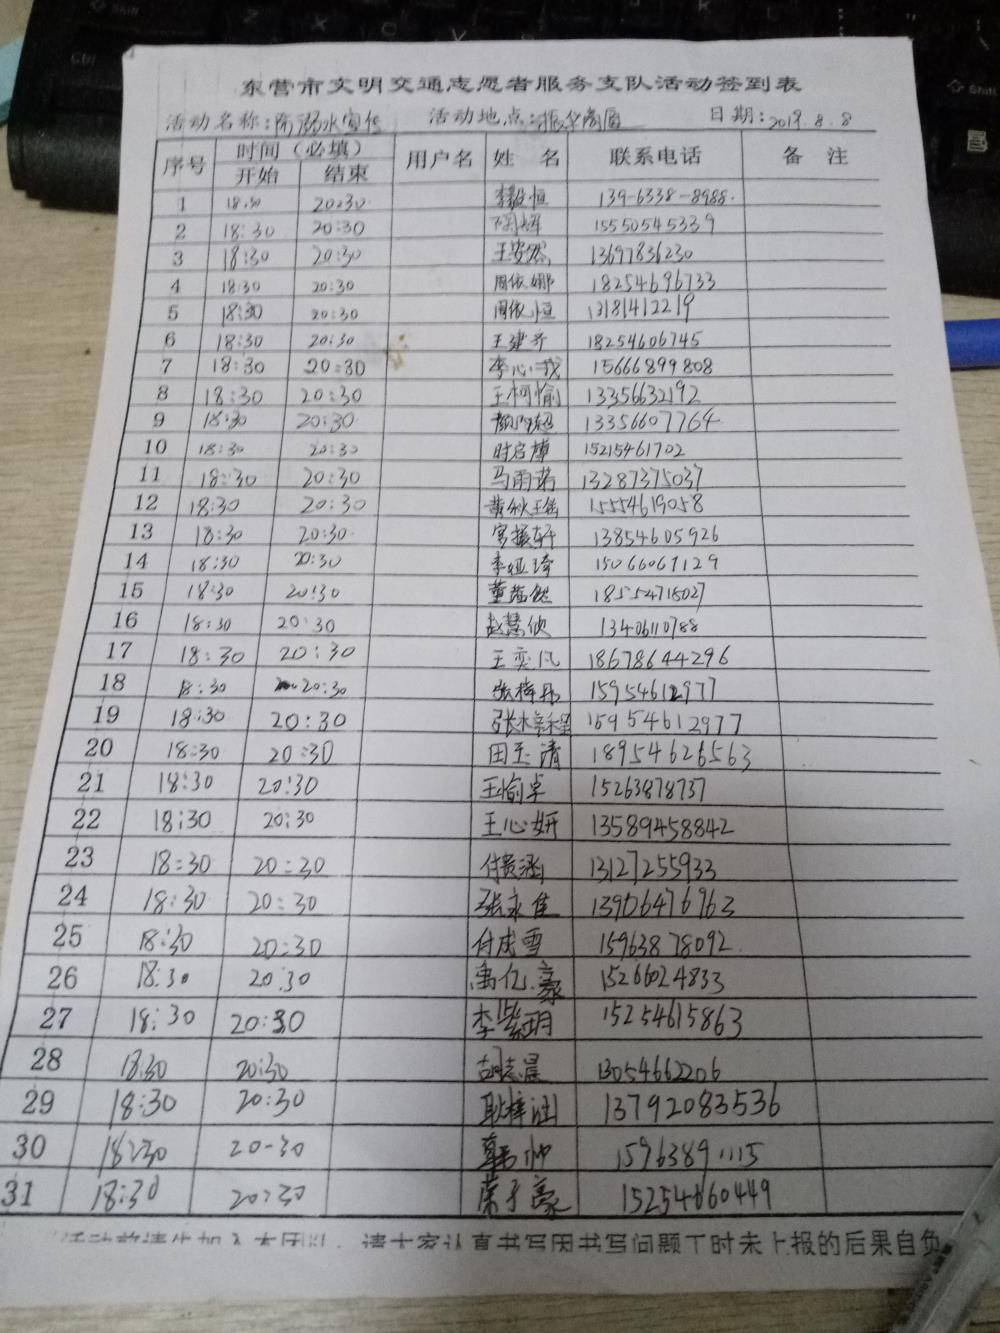 东营市文明交通志愿者服务支队活动签到表
活动名称:防溺水宣传 活动地点:振华商厦 日期:2019.8.8
序号 时间(必填) 用户名 姓 名 联系电话 备 注
开始 结束
1 18:30 20:30 李毅恒 139-6338-8988.
2 18:30 20:30 陶辉 15550545339
3 18:30 20:30 王姿然 13697836230
4 18:30 20:30 周依娜 18254696733
5 18:30 20:30 周依恒 13181412219
6 18:30 20:30 王建齐 18254606745
7 18:30 20:30 李心我 15666899808
8 18:30 20:30 王柯愉 13356632192
9 18:30 20:30 13356607764
10 18:30 20:30 时启樟 15215461702
11 18:30 20:30 马雨诺 13287375037
12 18:30 20:30 15554619058
13 18:30 20:30 13854605926
14 18:30 20:30 李娅琦 15066067129
15 18:30 20:30 18554715027
16 18:30 20:30 赵慧侦 13406110788
17 18:30 20:30 王奕凡 18678644296
18 18:30 20:30 15954612977
19 18:30 20:30 15954612977
20 18:30 20:30 田玉清 18954626563
21 18:30 20:30 王愉卓 15263878737
22 18:30 20:30 王心妍 13589458842
23 18:30 20:30 付贵涵 13127255933
24 18:30 20:30 张永佳 13906476963
25 18:30 20:30 付成雪 15963878092
26 18:30 20:30 禹亿豪 15266024833
27 18:30 20:30 李紫玥 15254615863
28 18:30 20:30 胡志晨 13054662206
29 18:30 20:30 耿梓涵 13792083536
30 18:30 20-30 韩帅 15963891115
31 18:30 20:30 荣子豪 15254660449
活动前请先加入本团队,请大家认真书写因书写问题工时未上报的后果自负